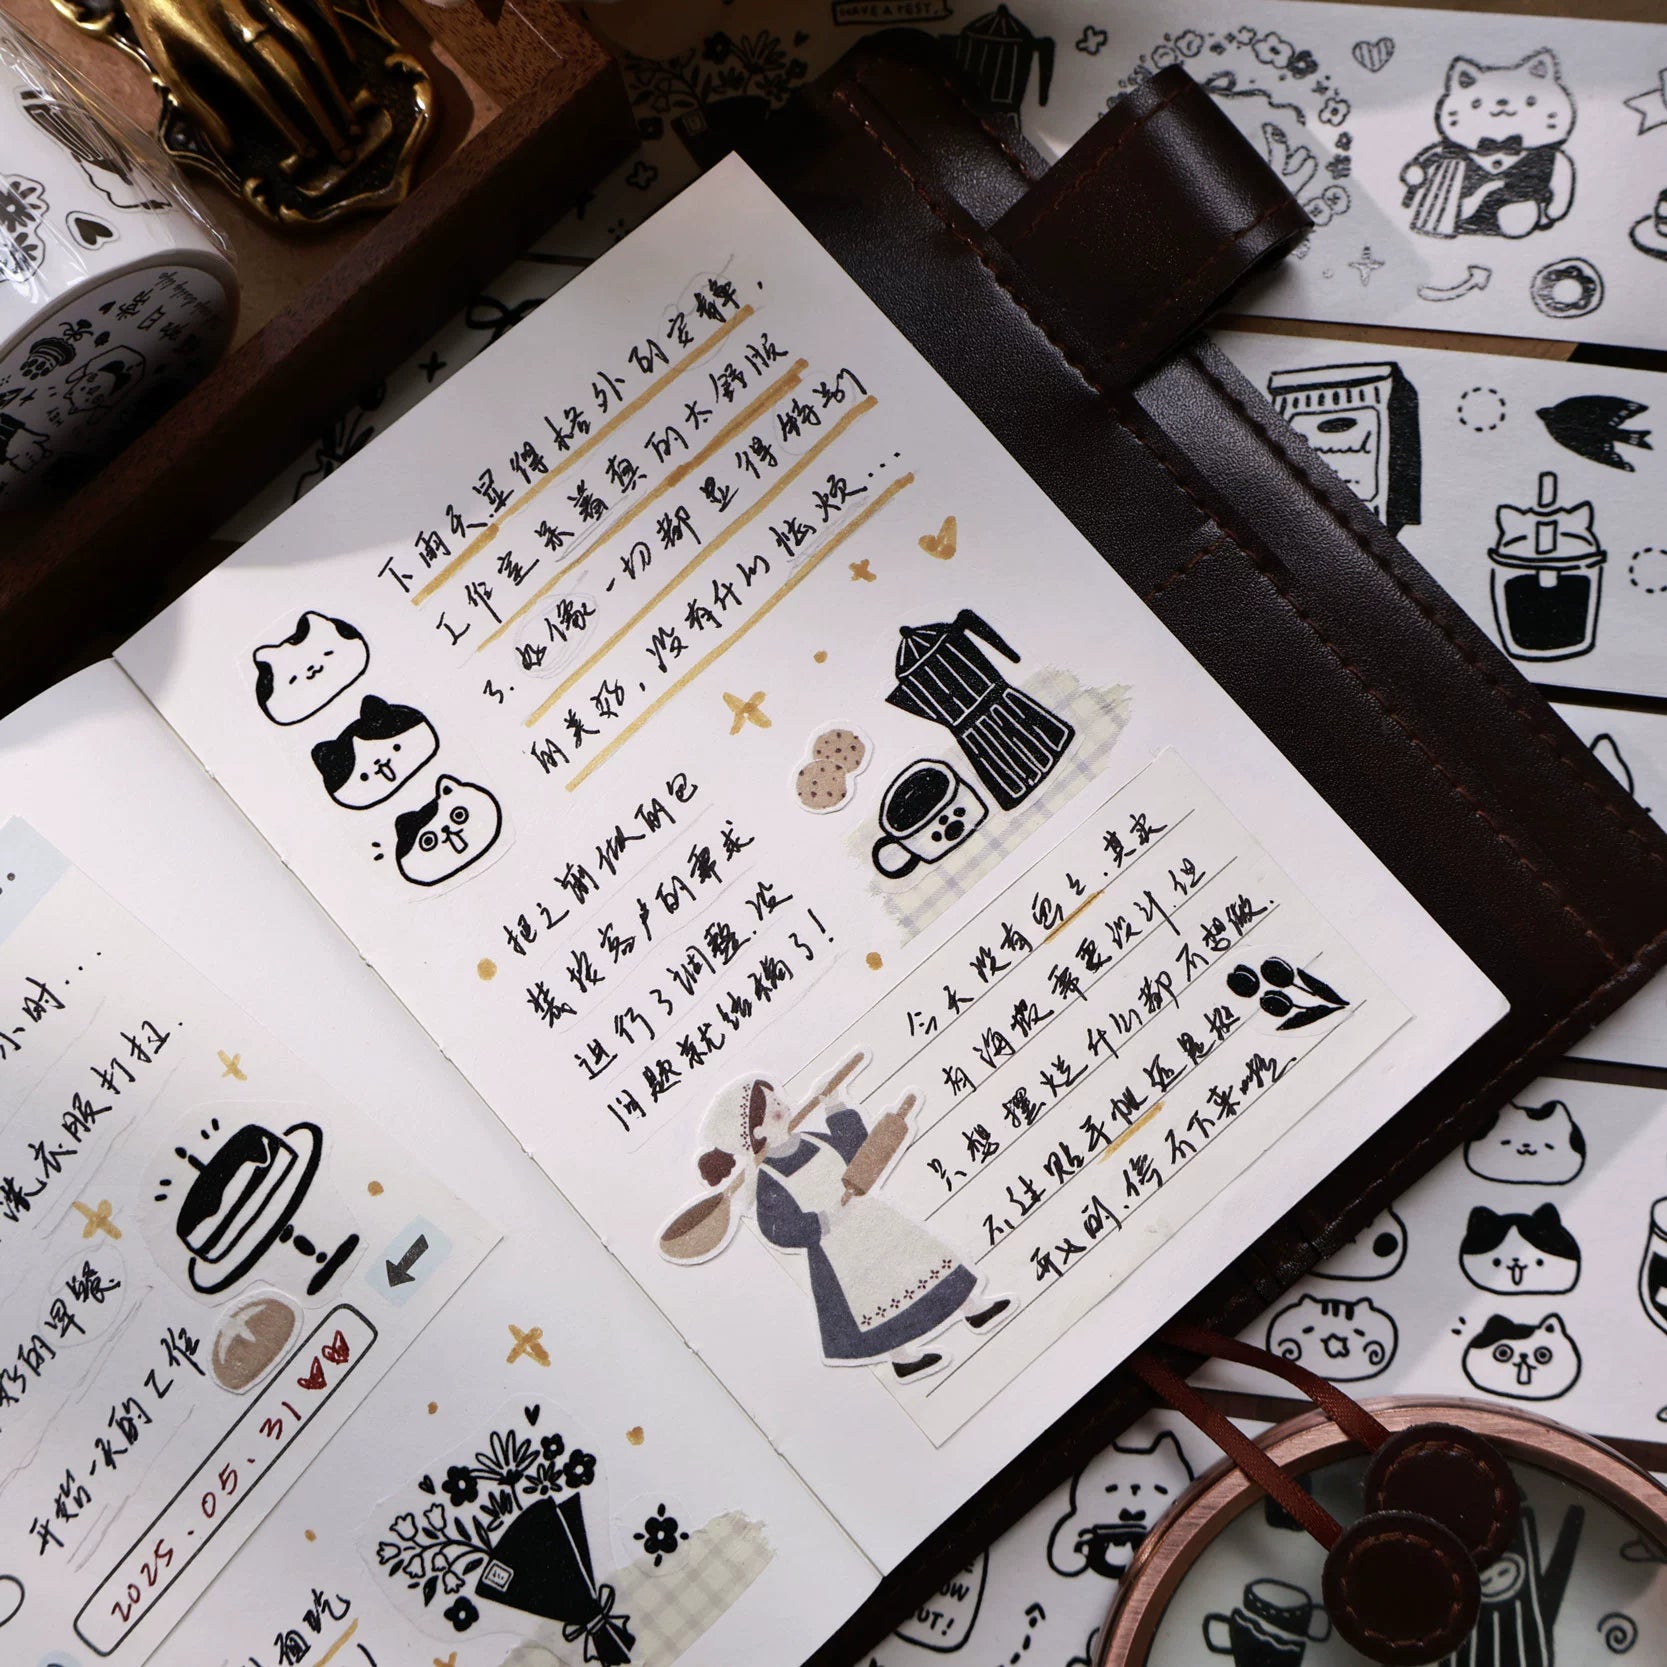 小时...
洗衣服打扫.
好的早餐
开始一天的工作
2025.05.31
面吃
下雨天显得格外的安静，
工作室呆着真的太舒服
了.好像一切都显得特别
的美好，没有什么烦...
把之前做的包
装按客户的需求
进行了调整.没
问题就结稿了！
今天没有画图.其实
有海报需要设计.但
只想摆烂什么都不想做.
不过贴手帐还是挺
开心的.停不下来啦~
HAVE A REST.
OW
OUT!